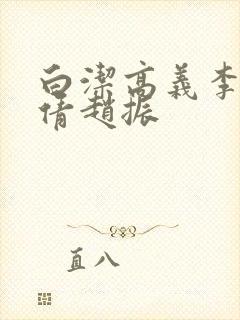 白潔高義李
倩趙振
直八